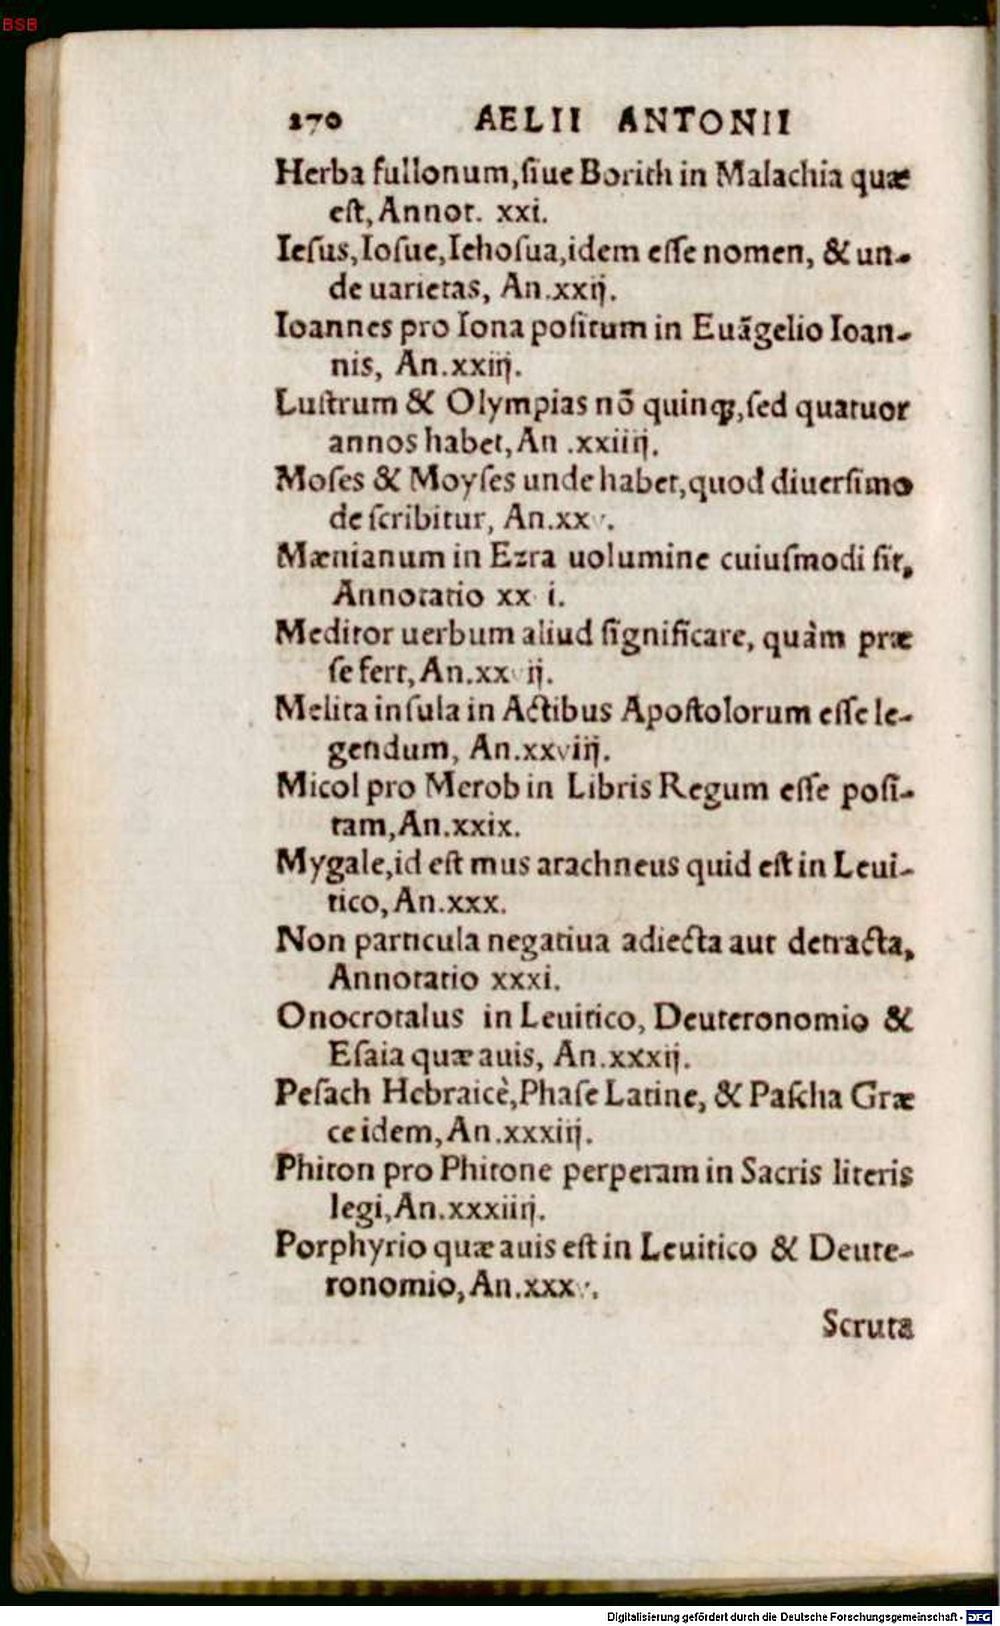 BSB
270 AELII ANTONII
Herba fullonum,ſiue Borith in Malachia quæ
eſt, Annot. xxi.
Ieſus,Ioſue,Iehoſua,idem eſſe nomen, & un-
de uarietas, An.xxij.
Ioannes pro Iona poſitum in Euãgelio Ioan-
nis, An.xxiij.
Luſtrum & Olympias nõ quinq;,ſed quatuor
annos habet, An .xxiiij.
Moſes & Moyſes unde habet,quod diuerſimo
de ſcribitur, An.xxv.
Mænianum in Ezra uolumine cuiuſmodi ſit,
Annotatio xx i.
Meditor uerbum aliud ſignificare, quàm præ
ſe fert, An.xxvij.
Melita inſula in Actibus Apoſtolorum eſſe le-
gendum, An.xxviij.
Micol pro Merob in Libris Regum eſſe poſi-
tam,An.xxix.
Mygale,id eſt mus arachneus quid eſt in Leui-
tico, An.xxx.
Non particula negatiua adiecta aut detracta,
Annotatio xxxi.
Onocrotalus in Leuitico, Deuteronomio &
Eſaia quæ auis, An.xxxij.
Peſach Hebraicè,Phaſe Latine, & Paſcha Græ
ce idem, An.xxxiij.
Phiton pro Phitone perperam in Sacris literis
legi,An.xxxiiij.
Porphyrio quæ auis eſt in Leuitico & Deute-
ronomio, An.xxxv.
Scruta
Digitalisierung gefördert durch die Deutsche Forschungsgemeinschaft - DFG